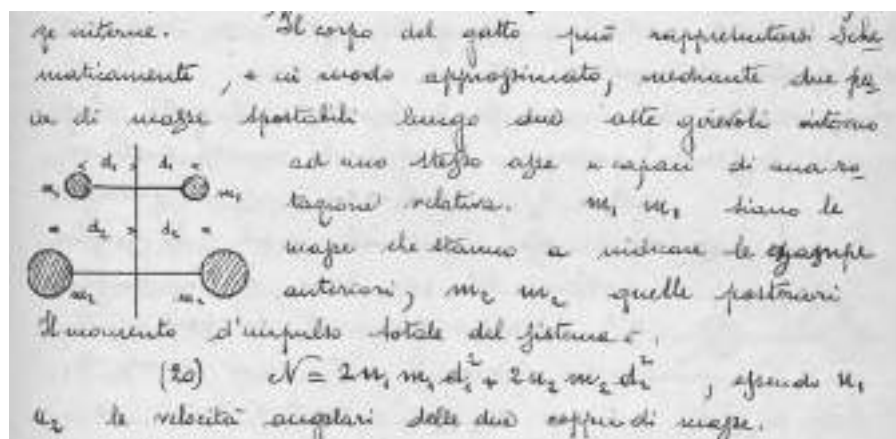 ze interne. Il corpo del gatto può rappresentarsi sche
maticamente, e in modo approssimato, mediante due pa
ia di masse spostabili lungo due aste girevoli intorno
ad uno stesso asse e capaci di una ro
tazione relativa. m₁ m₁ siano le
masse che stanno a indicare le zampe
anteriori, m₂ m₂ quelle posteriori
d₁ d₁
m₁ m₁
d₂ d₂
m₂ m₂
Il momento d'impulso totale del sistema è,
(20) N = 2u₁ m₁ d₁² + 2u₂ m₂ d₂², essendo u₁
u₂ le velocità angolari delle due coppie di masse.